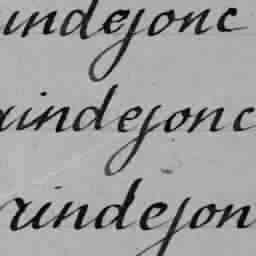 indejonc
indejonc
rindejon